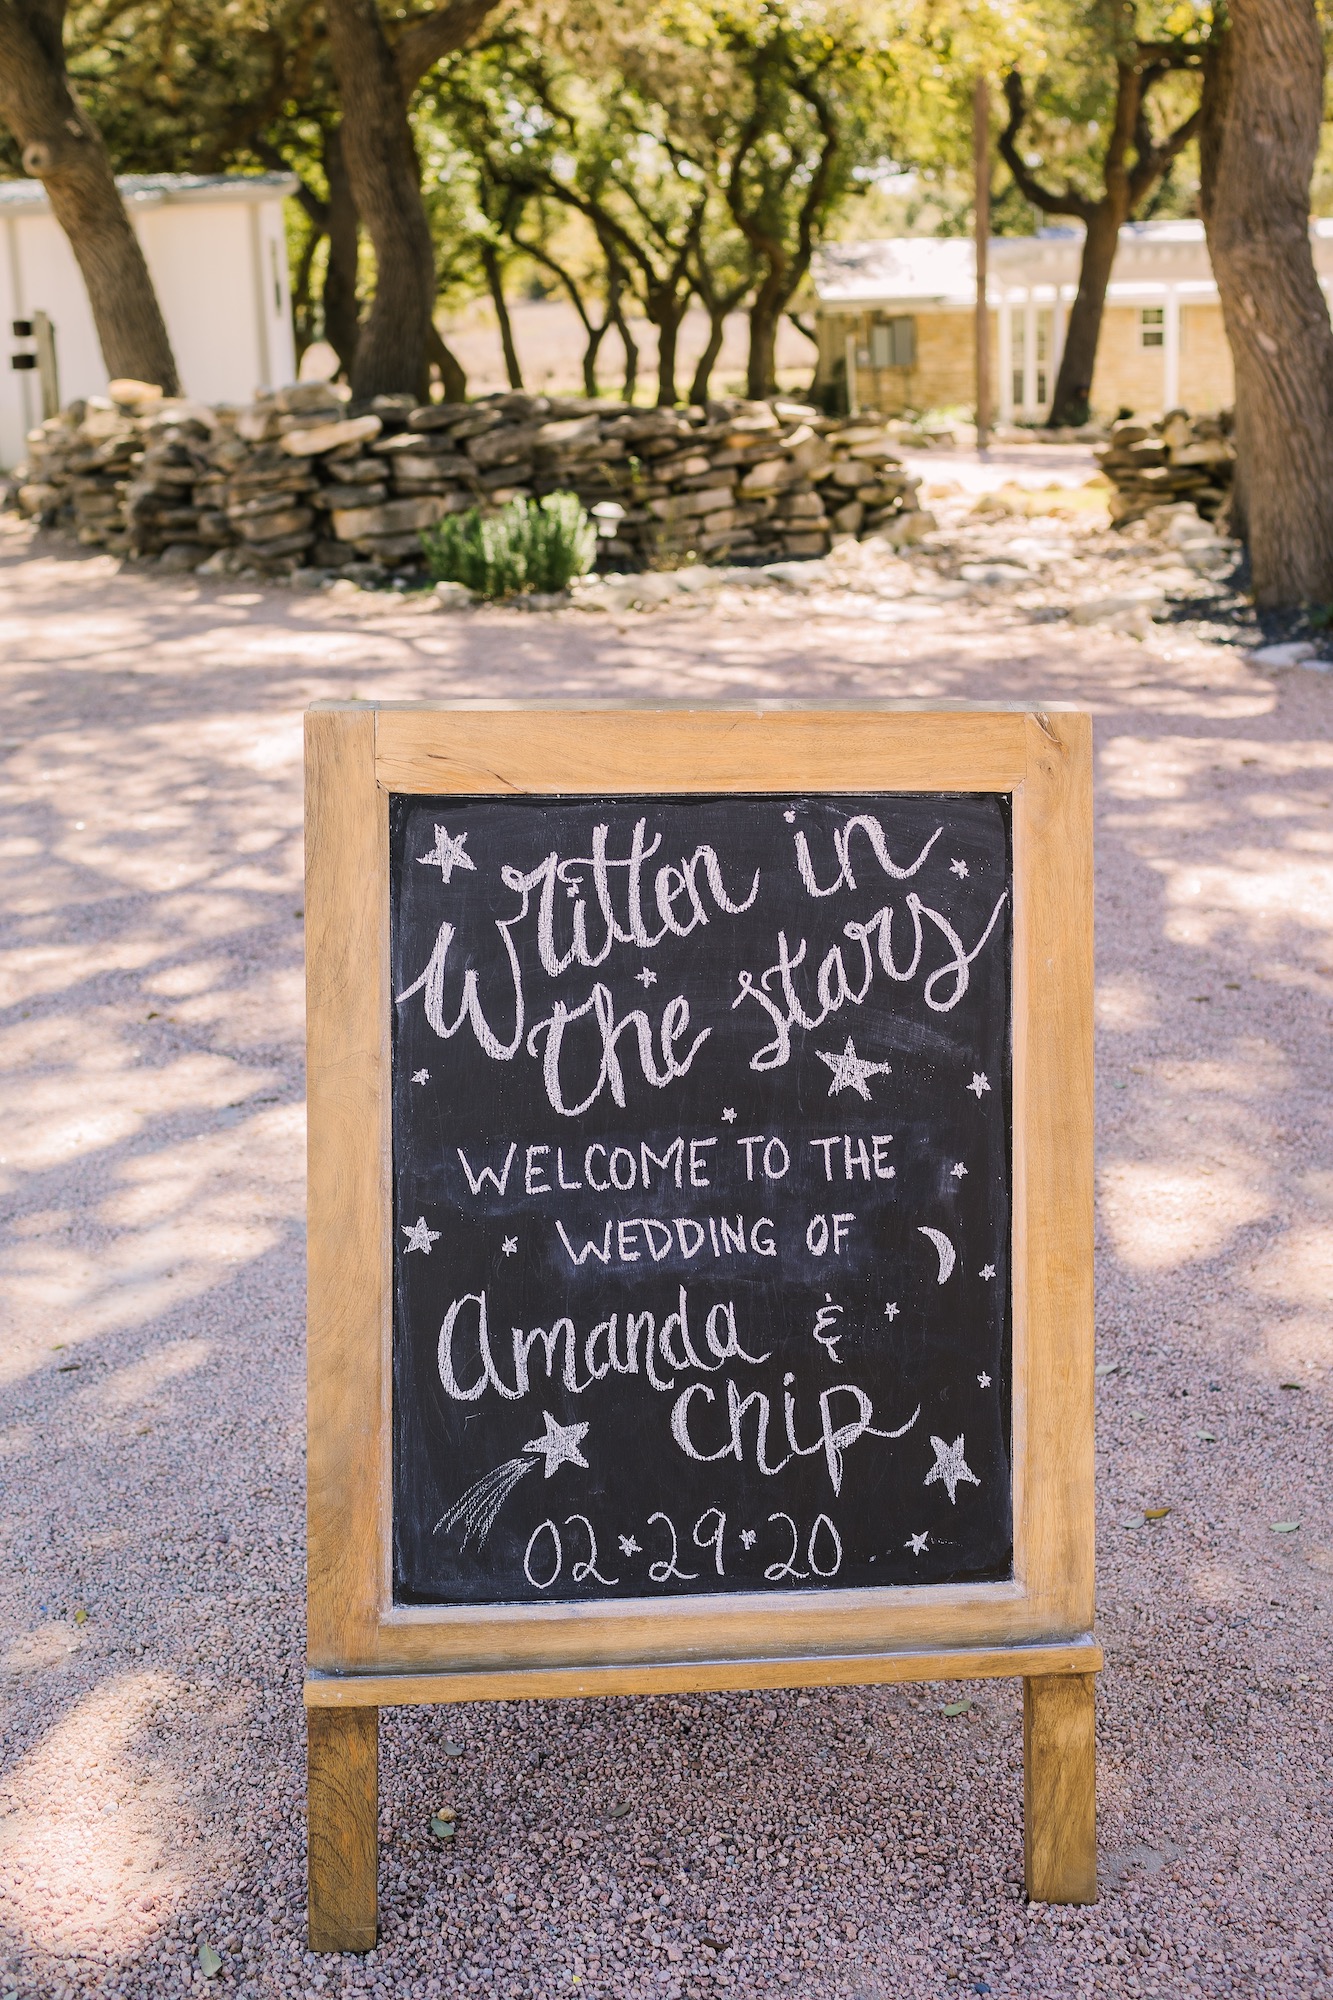 Written in
the stars
WELCOME TO THE
WEDDING OF
Amanda &
Chip
02*29*20